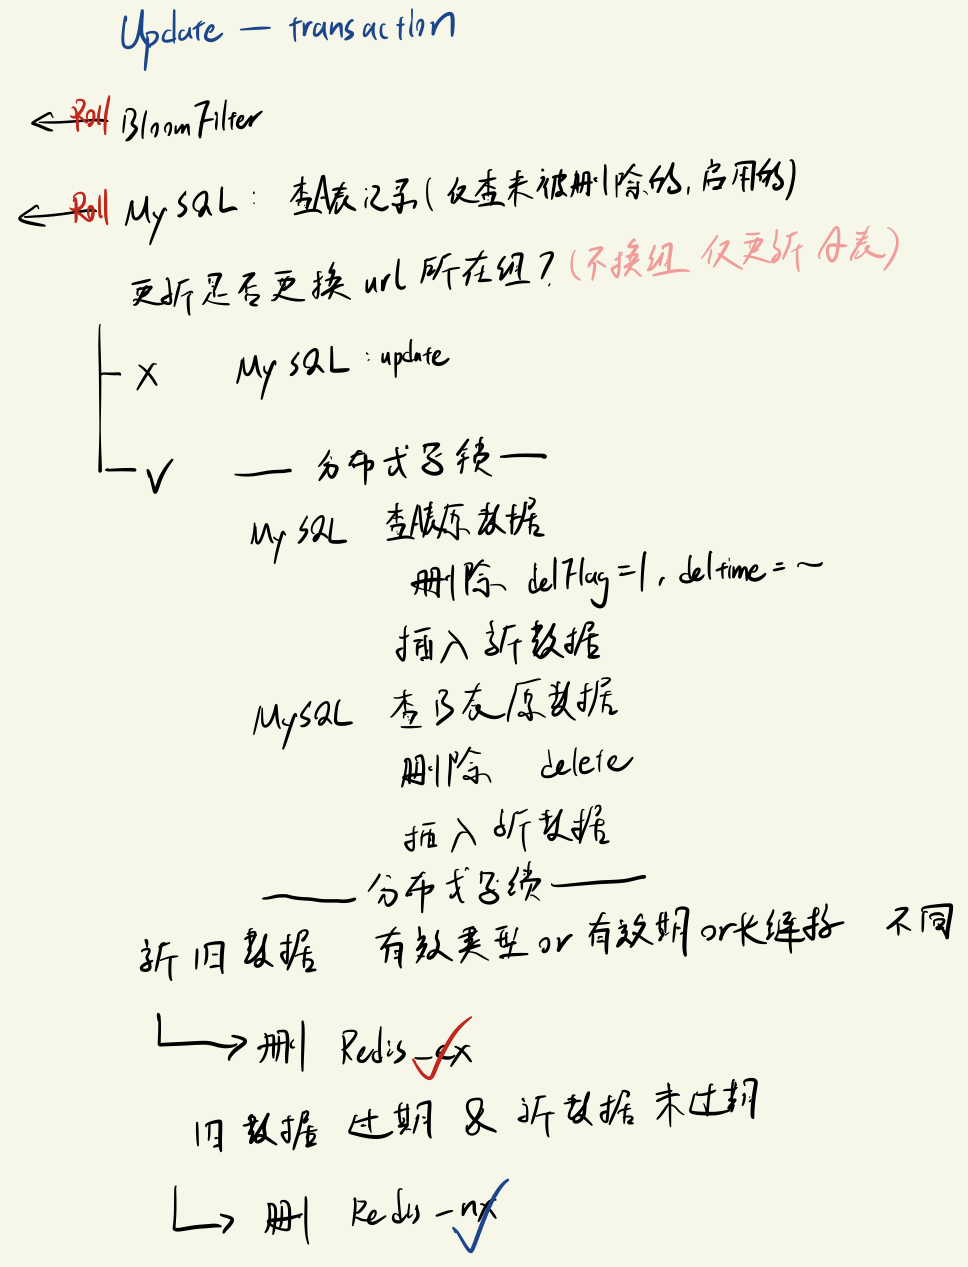 Update — transaction
Roll BloomFilter
Roll MySQL: 查A表记录(仅查未被删除的,启用的)
更新是否更换 url 所在组?(不换组 仅更新 A表)
X MySQL:update
√ — 分布式写锁 —
MySQL 查A表原数据
删除 delFlag=1, deltime=~
插入新数据
MySQL 查B表原数据
删除 delete
插入新数据
— 分布式写锁 —
新旧数据 有效类型or有效期or长链接 不同
删 Redis_ex
旧数据过期 & 新数据未过期
删 Redis_nx